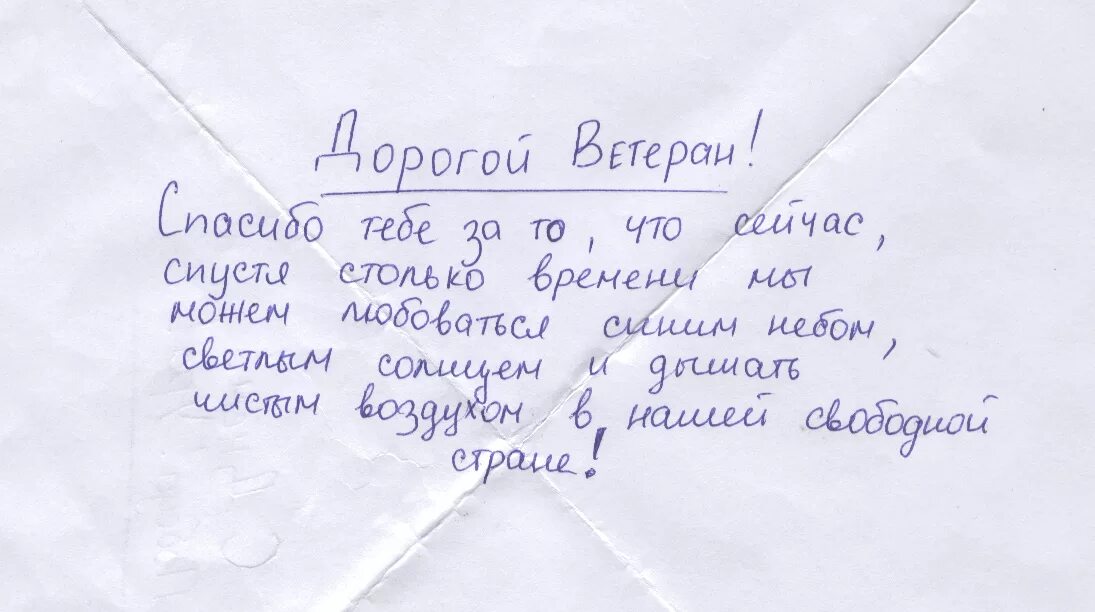 Дорогой Ветеран!
Спасибо тебе за то, что сейчас,
спустя столько времени мы
можем любоваться синим небом,
светлым солнцем и дышать
чистым воздухом в нашей свободной
стране!